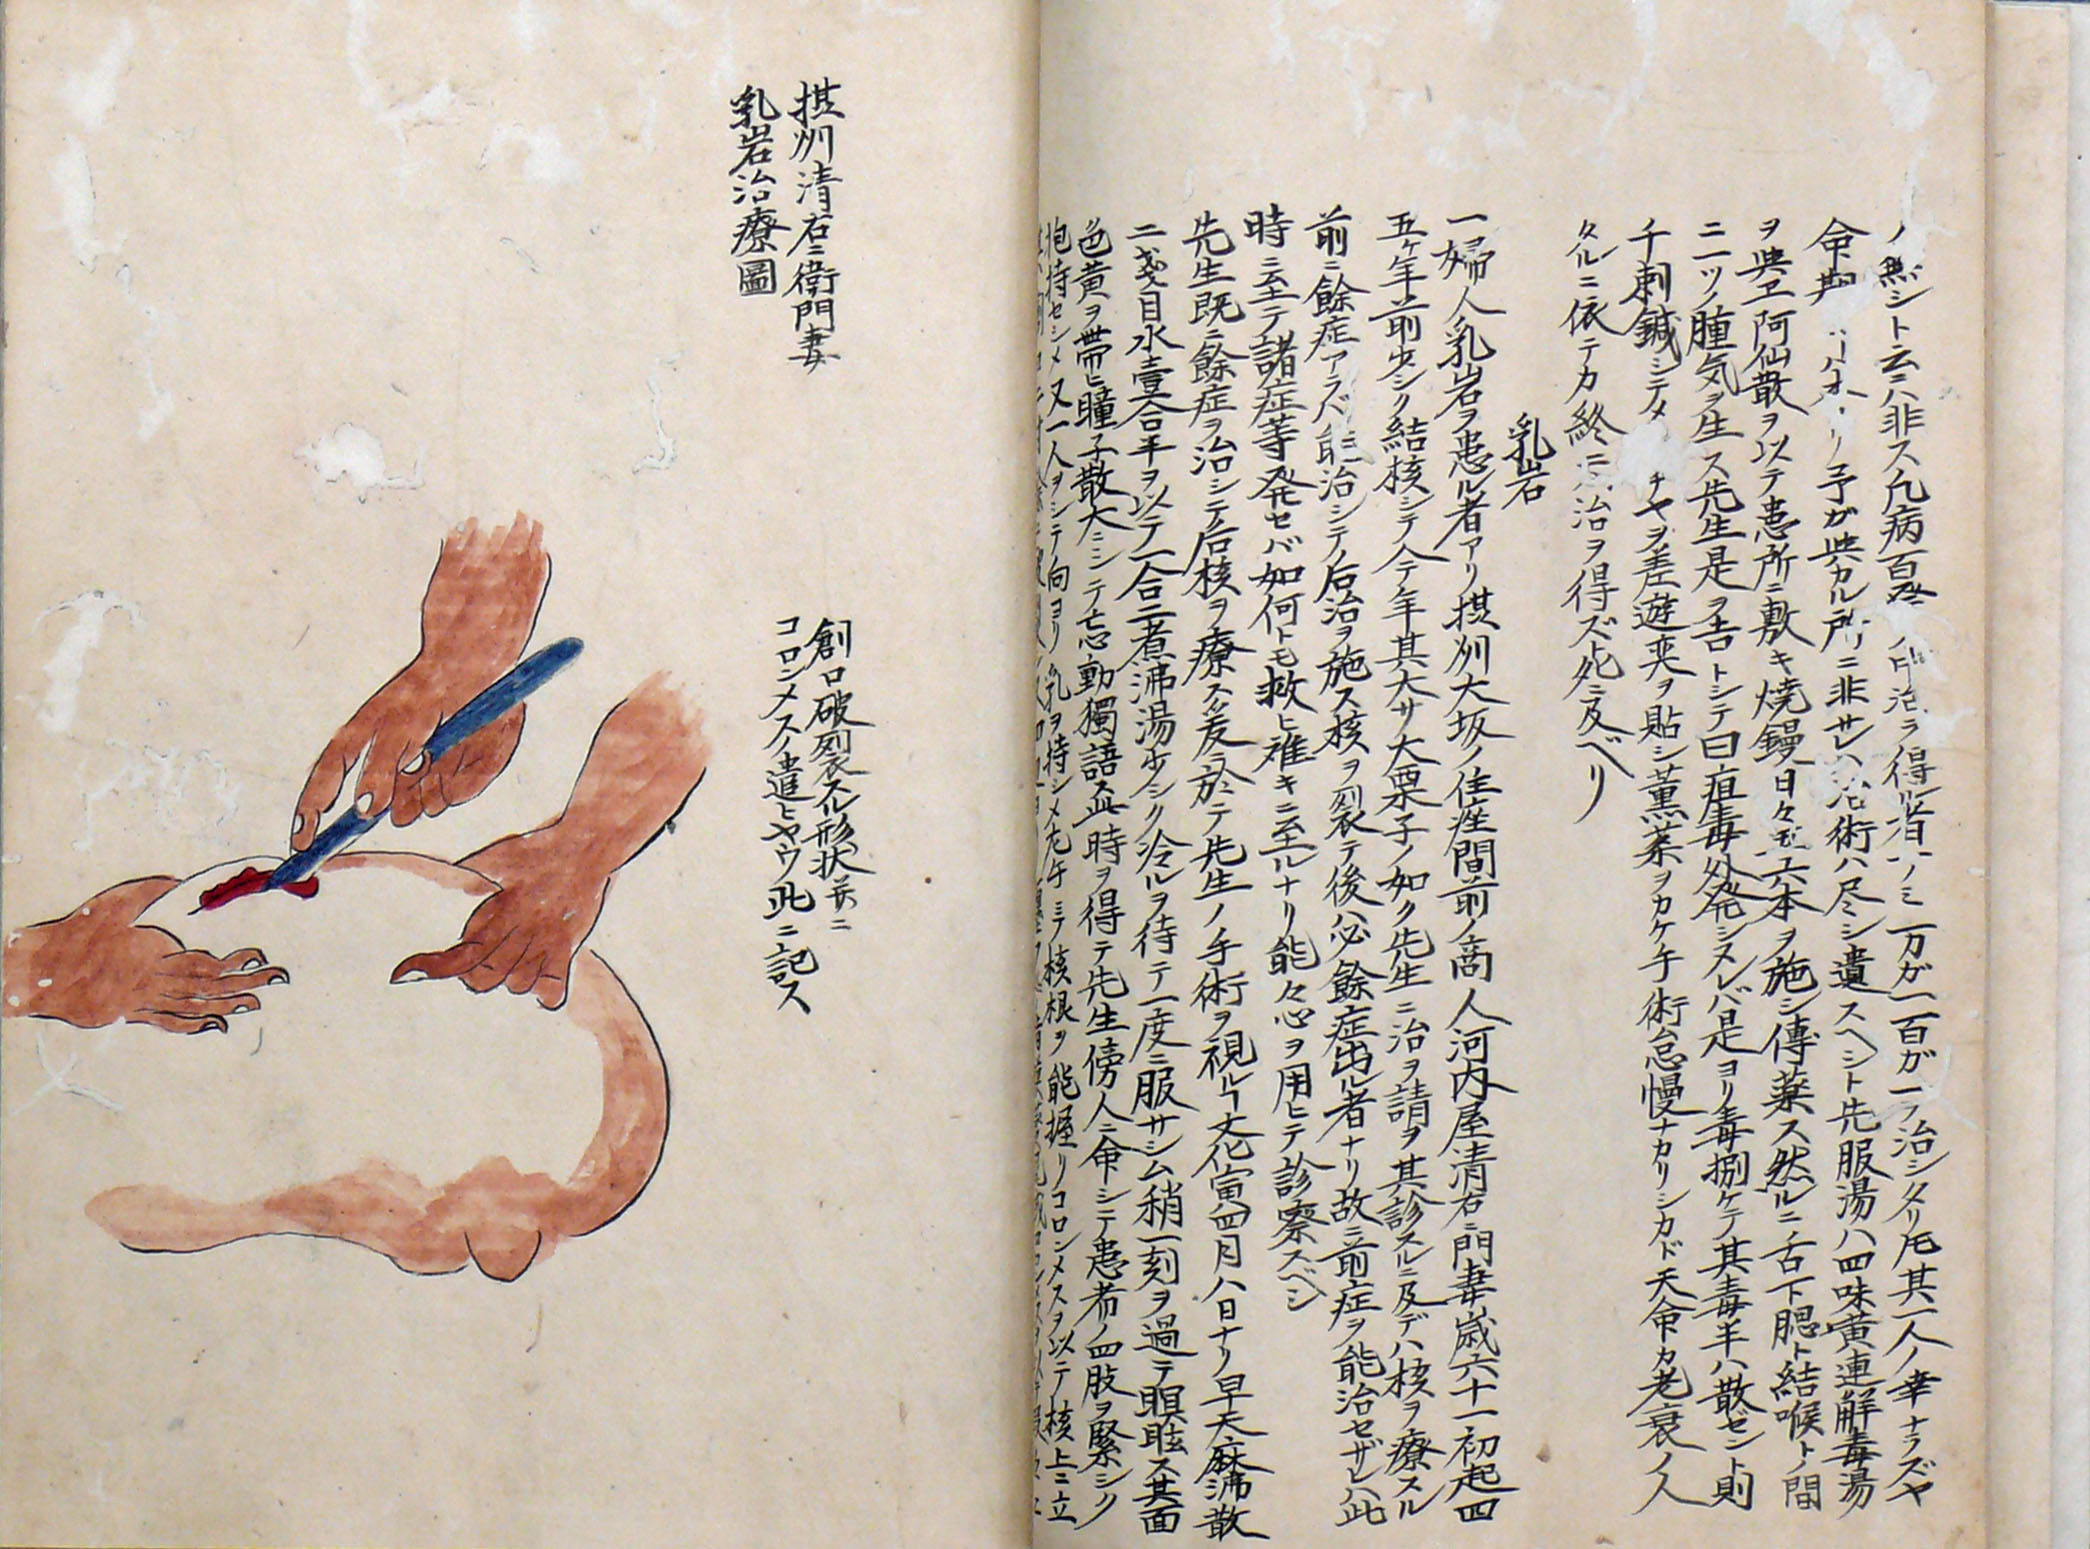 ノ無シト云ニハ非ス凡病百発ノ中治ヲ得ル者ノミ一万ガ一百ガ一ヲ治シタリ𪜈其一人ノ幸ナラズヤ
命期 リ予ガ與カル所ニ非サレハ治術ハ尽シ遣スヘシト先服湯ハ四味黄連解毒湯
ヲ與ヱ阿仙散ヲ以テ患所ニ敷キ焼鏝日々五六本ヲ施シ傳薬ス然ルニ舌下腮ト結喉トノ間
ニ一ツノ腫気ヲ生ス先生是ヲ吉トシテ曰疽毒外発シヌレバ是ヨリ毒捌ケテ其毒半ハ散ゼント則
千刺鍼シテメ チヤヲ差遊奕ヲ貼シ薫薬ヲカケ手術怠慢ナカリシカド天命カ老衰ノ人
タルニ依テカ終ニ治ヲ得ズ死ニ及ベリ
乳岩
一婦人乳岩ヲ患ル者アリ摂刕大坂ノ住座間前ノ商人河内屋清右エ門妻歳六十一初起四
五ケ年前少シク結核シテ今年其大サ大栗子ノ如ク先生ニ治ヲ請ヲ其診スルニ及デハ核ヲ療スル
前ニ餘症アラバ能治シテノ后治ヲ施ス核ヲ裂テ後ハ必餘症出ル者ナリ故ニ前症ヲ能治セザレハ此
時ニ至テ諸症等発セバ如何トモ救ヒ難キニ至ルナリ能々心ヲ用ヒテ診察スベシ
先生既ニ餘症ヲ治シテノ后核ヲ療ス爰ニ於テ先生ノ手術ヲ視ルヿ文化寅四月八日ナリ早天麻沸散
二戔目水壹合半ヲ以テ一合ニ煮沸湯少シク冷ルヲ待テ一度ニ服サシム稍一刻ヲ過テ瞑眩ス其面
色黄ヲ帯ヒ瞳子散大ニシテ忘動獨語ス此時ヲ得テ先生傍人ニ命シテ患者ノ四肢ヲ緊シク
抱持セシメ又一人ヲシテ向ヨリ乳ヲ持シメ左手ニテ核根ヲ能握リコロンメスヲ以テ核上ニ立
摂刕清右エ衛門妻
乳岩治療圖
創口破裂スル形状并ニ
コロンメスノ遣ヒヤウ此ニ記ス